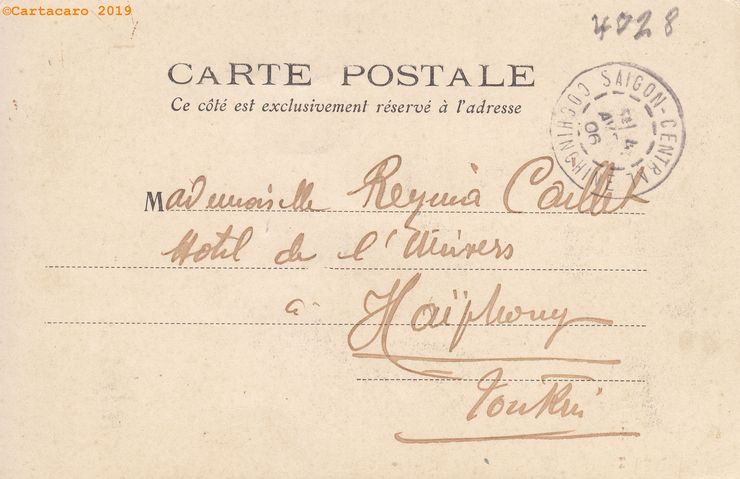 ©Cartacaro 2019
4028
CARTE POSTALE
Ce côté est exclusivement réservé à l'adresse
SAIGON-CENTRAL
COCHINCHINE
4
AVR
06
Mademoiselle Regina Caillet
Hotel de l'Univers
à Haïphong
Tonkin